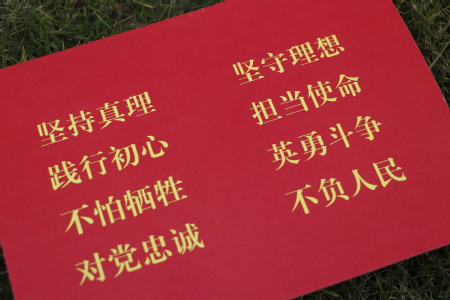 坚持真理
坚守理想
践行初心
担当使命
不怕牺牲
英勇斗争
对党忠诚
不负人民